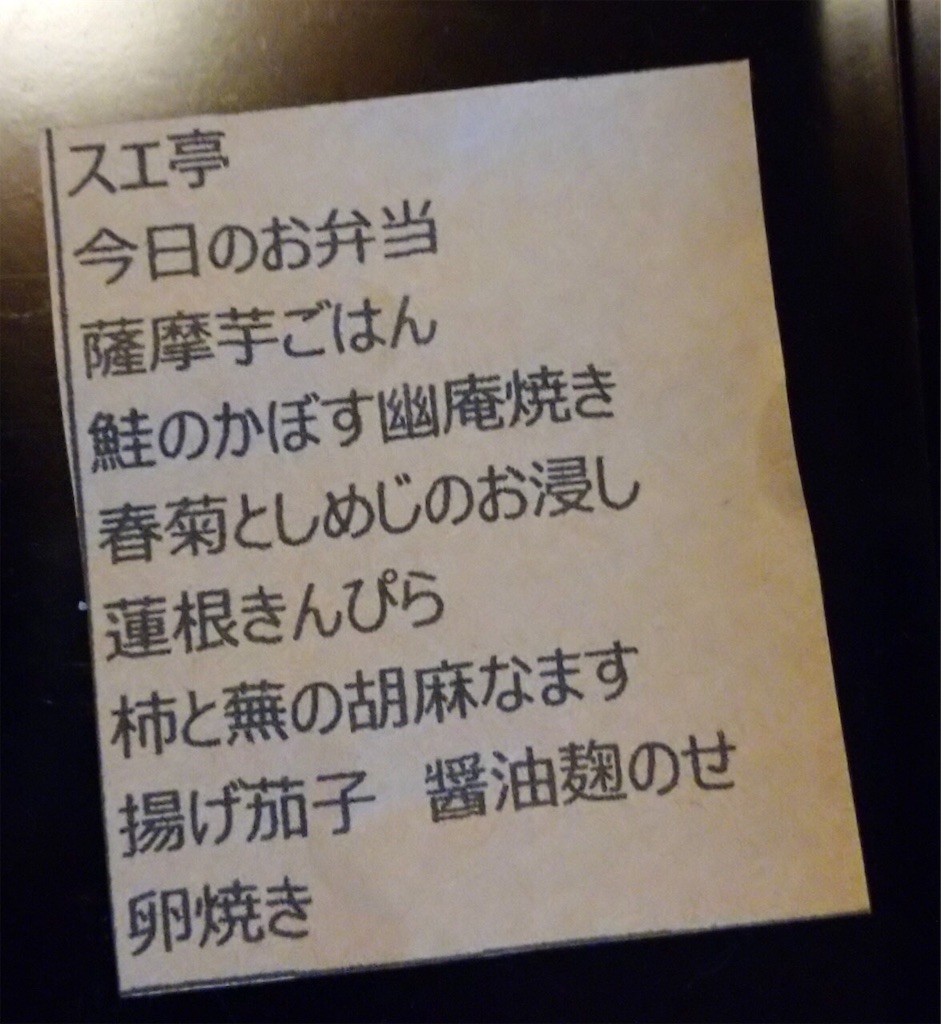 スエ亭
今日のお弁当
薩摩芋ごはん
鮭のかぼす幽庵焼き
春菊としめじのお浸し
蓮根きんぴら
柿と蕪の胡麻なます
揚げ茄子　醤油麹のせ
卵焼き